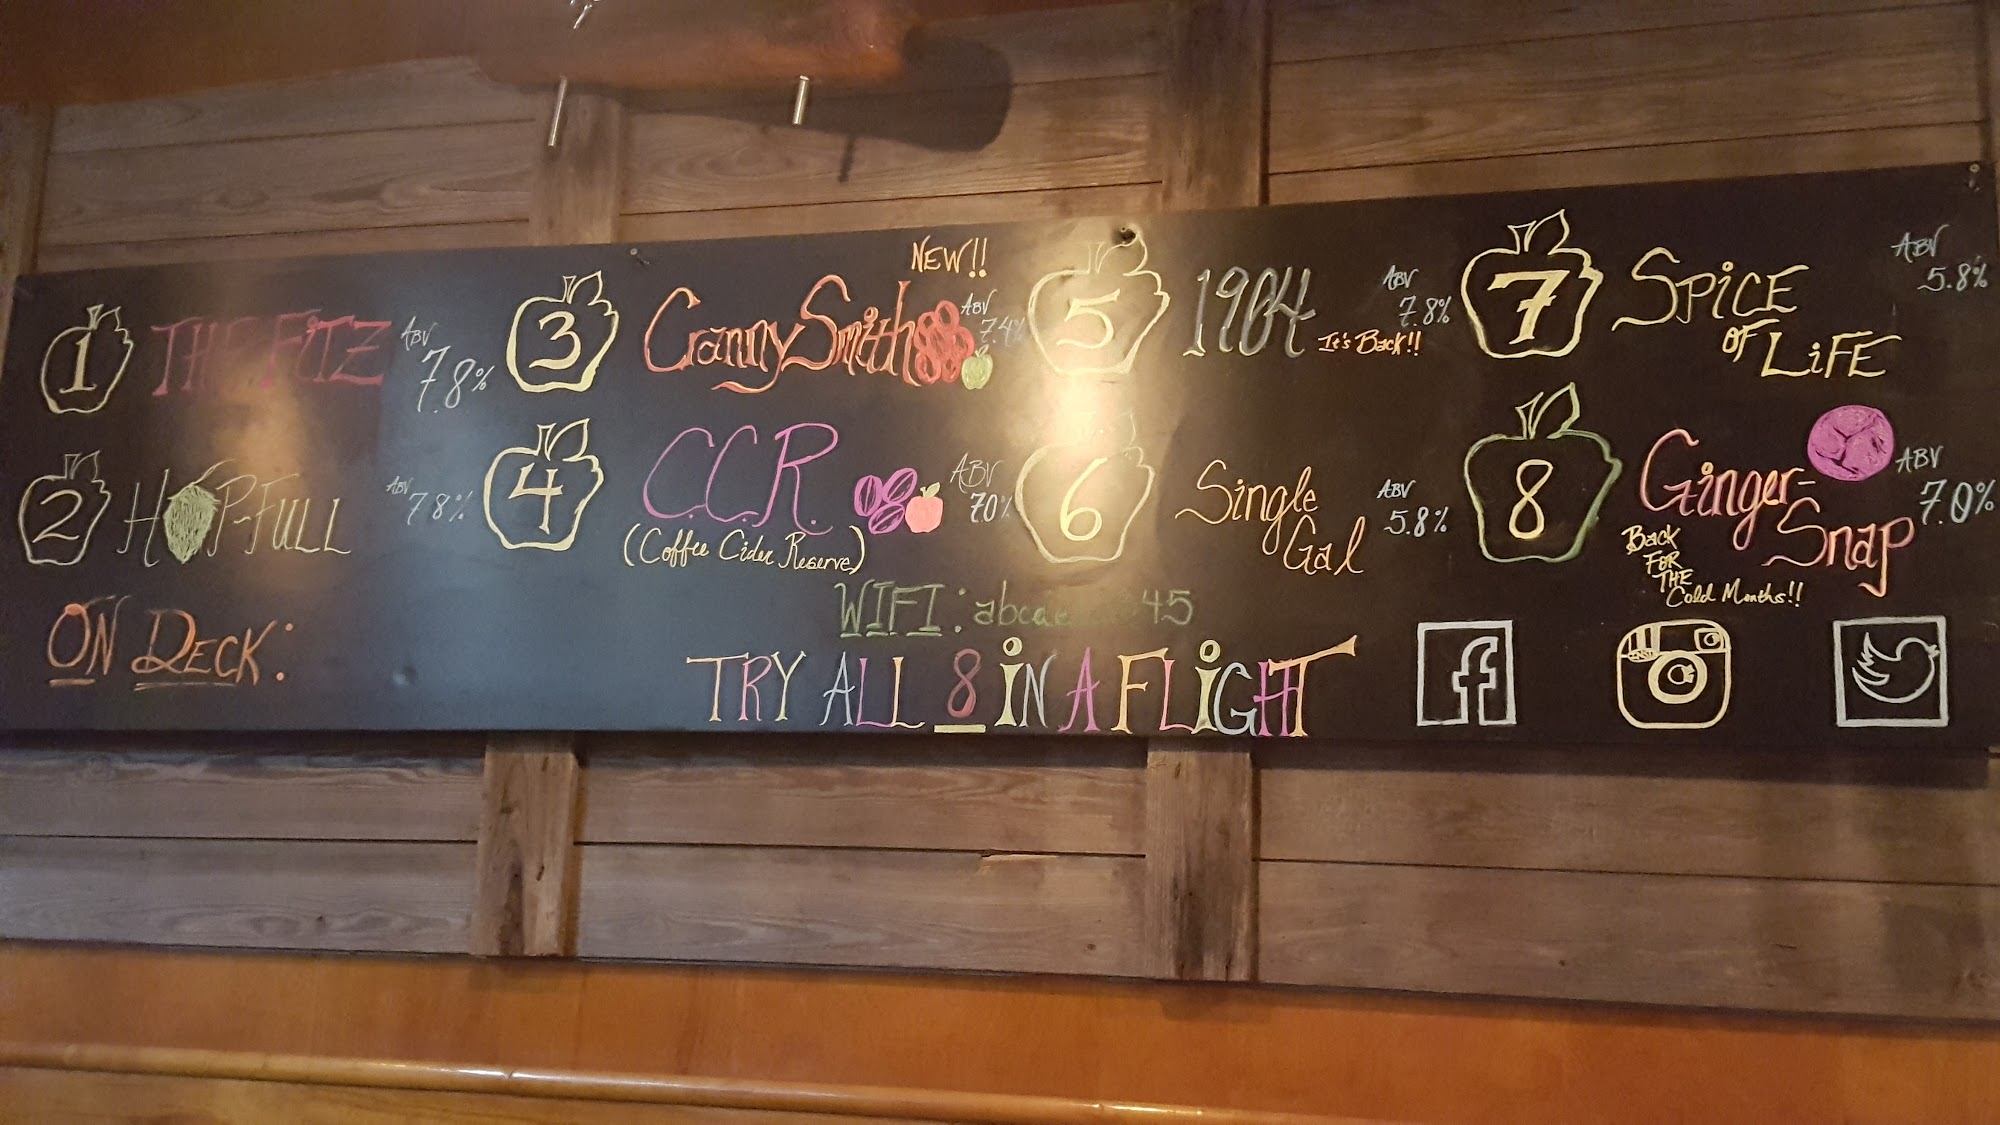 1 THE FITZ ABV 7.8%
2 HOP-FULL ABV 7.8%
ON DECK:
NEW!!
3 Cranny Smith ABV 7.4%
4 C.C.R. ABV 7.0%
(Coffee Cider Reserve)
5 1904 ABV 7.8%
It's Back!!
6 Single Gal ABV 5.8%
7 SPiCE OF LiFE ABV 5.8%
8 Ginger-Snap ABV 7.0%
Back
FOR
THE
Cold Months!!
WIFI:
TRY ALL 8 iN A FLiGHT
f